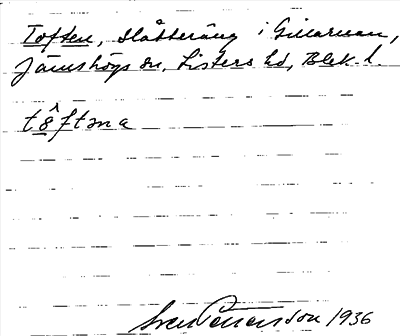 Toften, slåtteräng i Gillarum,
Jämshögs sn, Listers hd, Blek. l.
tôftəna
Sven Petersson 1936